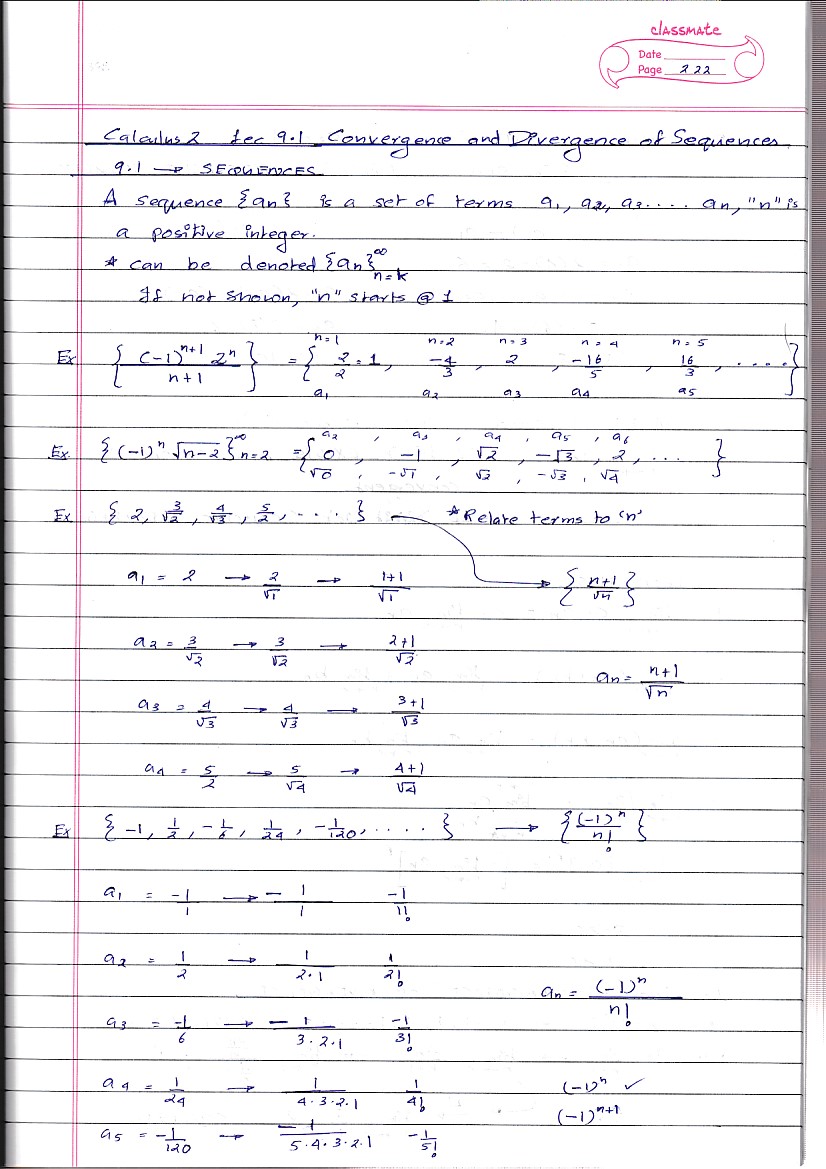 classmate
Date
Page 222
Calculus 2 Lec 9.1 Convergence and Divergence of Sequences
9.1 → SEQUENCES
A sequence {an} is a set of terms a1, a2, a3..... an, "n" is
a positive integer.
* can be denoted {an}^∞ n=k
If not shown, "n" starts @ 1
n=1 n=2 n=3 n=4 n=5
Ex { (-1)^(n+1) 2^n / n+1 } = { 2/2 = 1, -4/3, 2, -16/5, 16/3, ..... }
a1 a2 a3 a4 a5
a2, a3, a4, a5, a6
Ex. { (-1)^n √(n-2) }^∞ n=2 = { 0, -1, √2, -√3, 2, ... }
√0, -√1, √2, -√3, √4
Ex { 2, 3/√2, 4/√3, 5/2, ..... } → *Relate terms to 'n'
a1 = 2 → 2/√1 → 1+1/√1 { n+1/√n }
a2 = 3/√2 → 3/√2 → 2+1/√2
an = n+1/√n
a3 = 4/√3 → 4/√3 → 3+1/√3
a4 = 5/2 → 5/√4 → 4+1/√4
Ex { -1, 1/2, -1/6, 1/24, -1/120, ..... } → { (-1)^n / n! }
a1 = -1/1 → - 1/1 -1/1!
a2 = 1/2 → 1/2·1 1/2!
an = (-1)^n / n!
a3 = -1/6 → - 1/3·2·1 -1/3!
a4 = 1/24 → 1/4·3·2·1 1/4! (-1)^n ✓
(-1)^(n+1)
a5 = -1/120 → -1/5·4·3·2·1 -1/5!